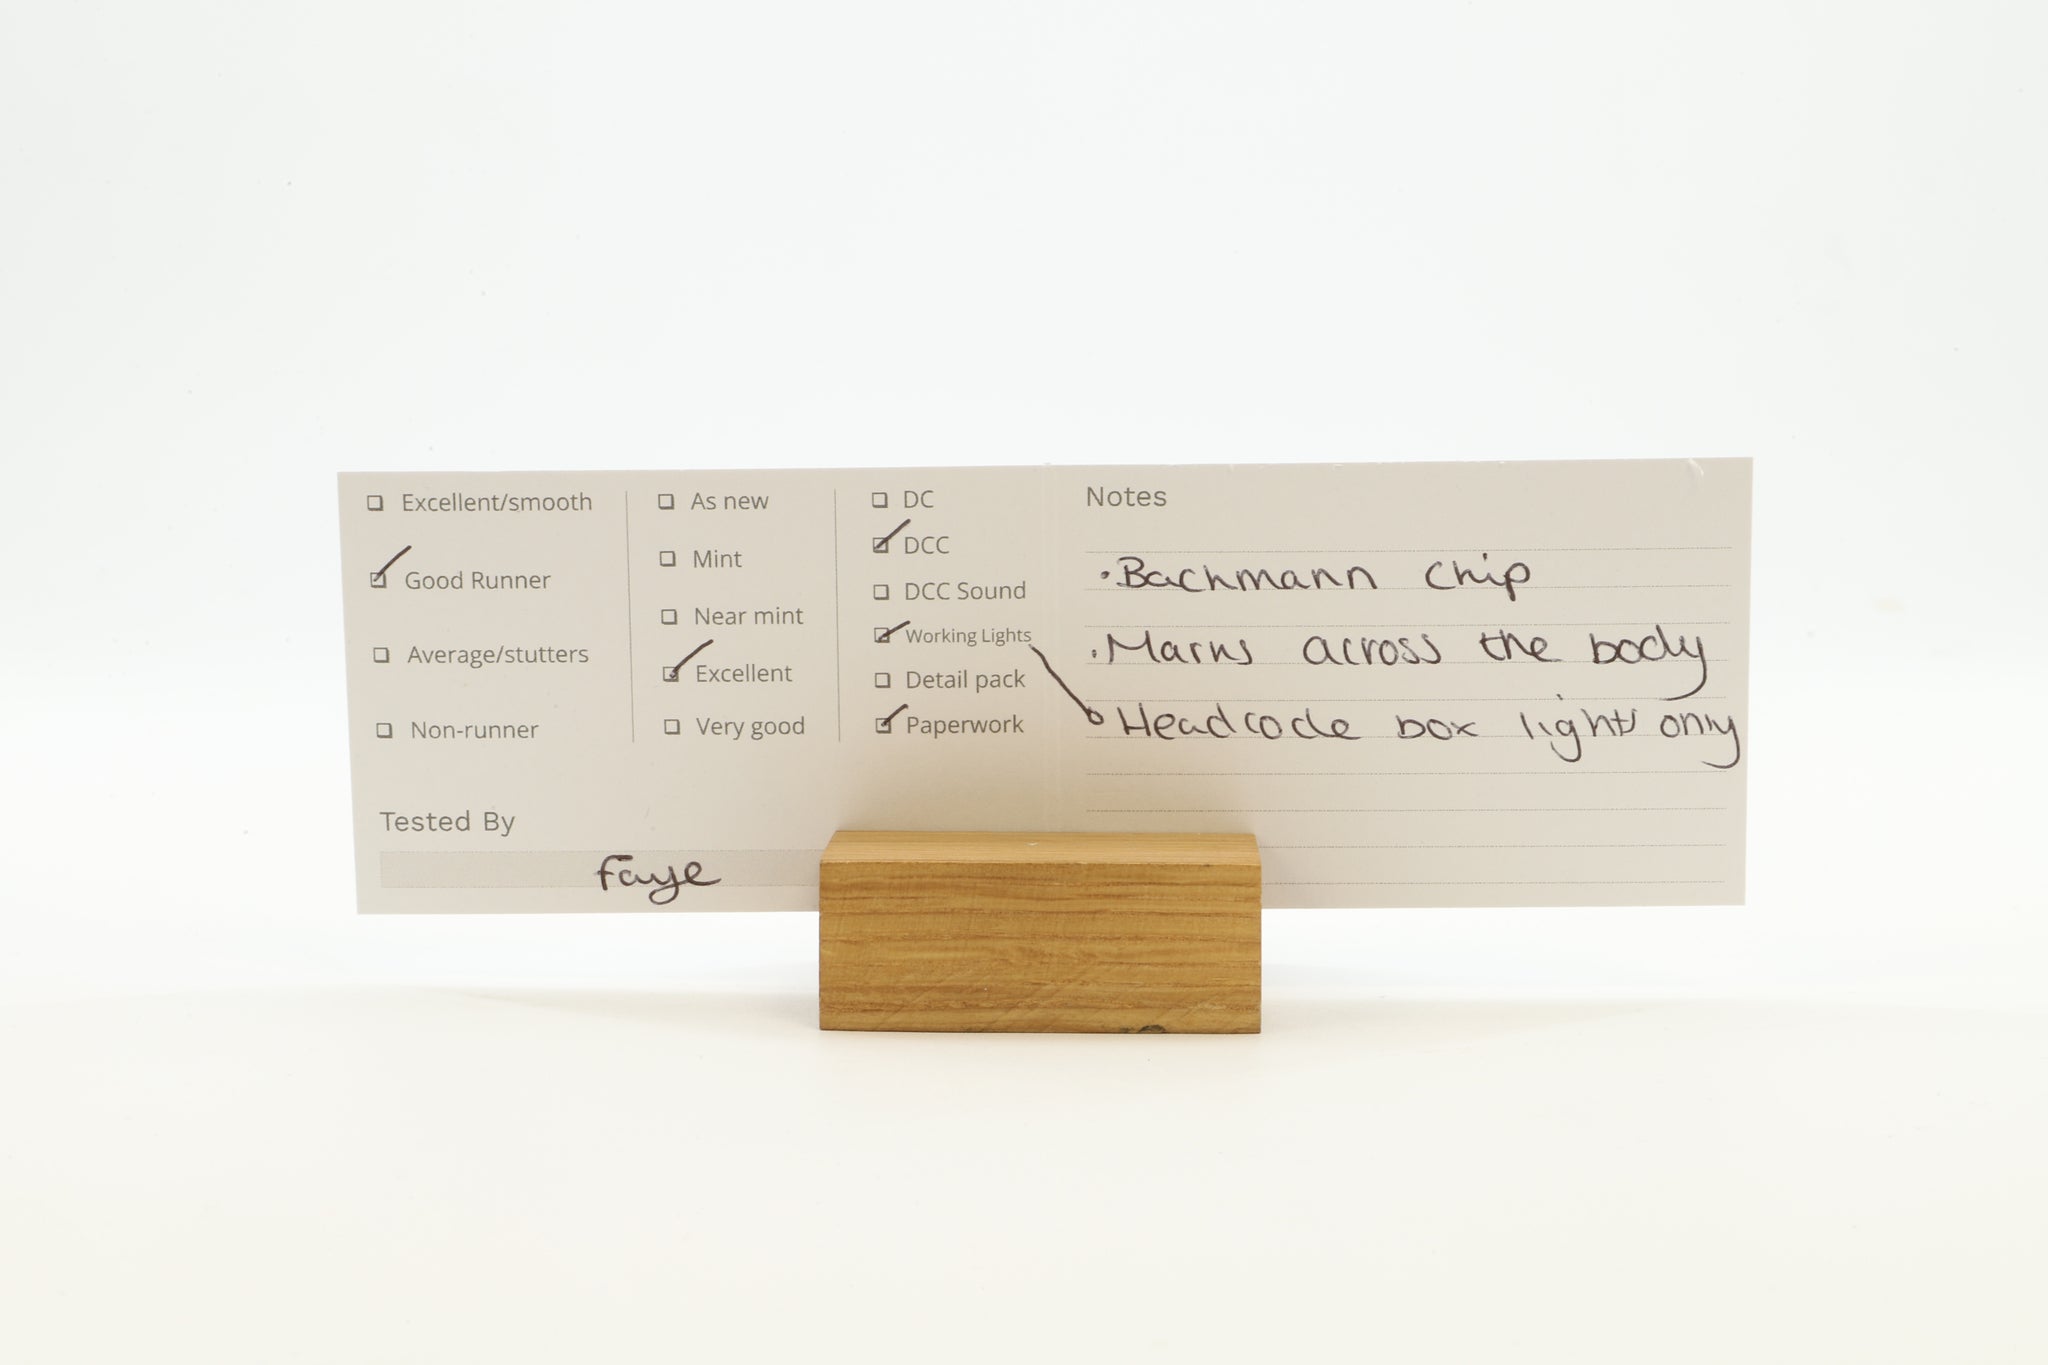 Excellent/smooth
Good Runner
Average/stutters
Non-runner
As new
Mint
Near mint
Excellent
Very good
DC
DCC
DCC Sound
Working Lights
Detail pack
Paperwork
Tested By
Faye
Notes
• Bachmann chip
• Marks across the body
• Headcode box lights only